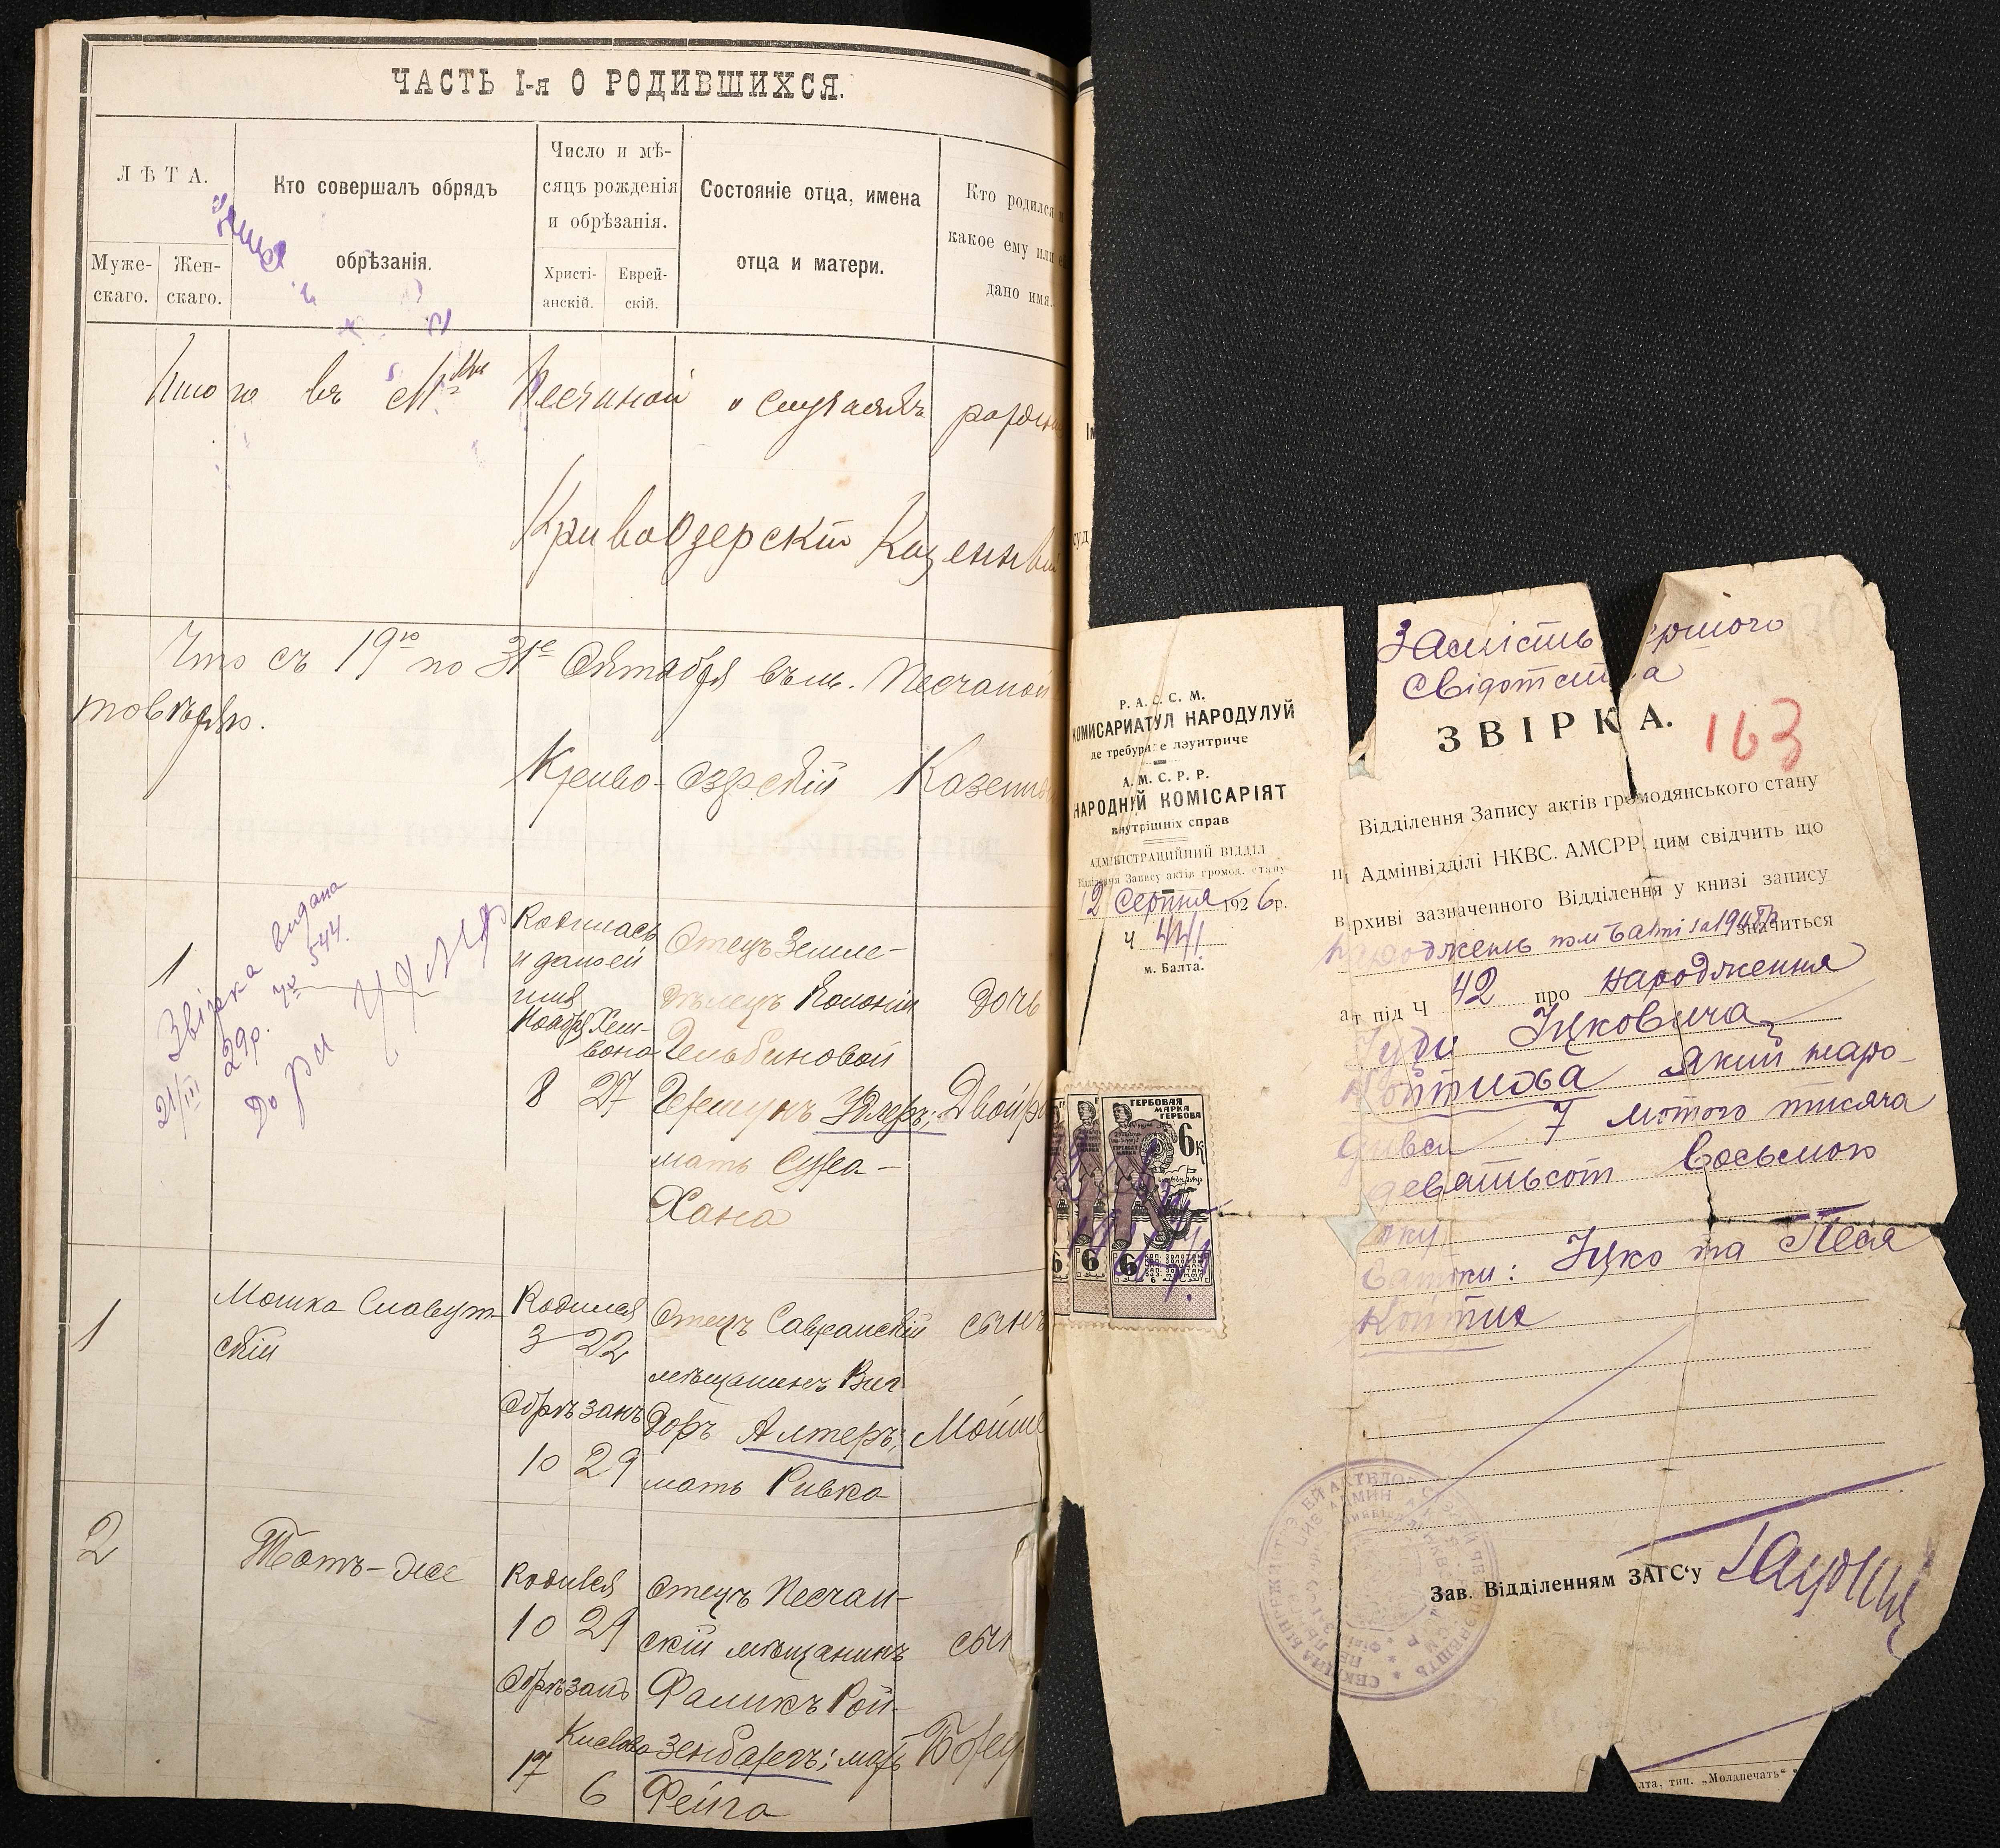 ЧАСТЬ I-я О РОДИВШИХСЯ.
ЛѢТА.
Муже-
скаго.
Жен-
скаго.
Кто совершалъ обрядъ
обрѣзанія.
Число и мѣ-
сяцъ рожденія
и обрѣзанія.
Христі-
анскій.
Еврей-
скій.
Состояніе отца, имена
отца и матери.
Кто родился
какое ему или
дано имя.
Итого въ Песчаной о случаяхъ
КривоОзерскій Казенный
Что съ 19го по 31е Октября въ м. Песчаной
Криво-озерскій Казенный
1
Звірка видана
21/III 29р. № 544.
Родилась
и дано ей
имя
Ноября
Хеш-
вона
8 27
Отецъ Земле-
дѣлецъ Колоніи
Гершунъ
мать Сура-
Хана
дочь
Двойра
1
Мошка Славут-
скій
Родился
3 22
Обрѣзанъ
10 29
Отецъ Савранскій
мѣщанинъ Виг
доръ Алтеръ;
мать Ривка
сынъ
2
Тотъ-же
Родился
10 29
Обрѣзанъ
Кислева
17 6
Отецъ Песчан-
скій мѣщанинъ
Фаликъ Рой-
зенбергъ; мать
Фейга
Р. А. С. С. М.
КОМИСАРИАТУЛ НАРОДУЛУЙ
де требуриле лэунтриче
А. М. С. Р. Р.
НАРОДНІЙ КОМІСАРІЯТ
внутрішніх справ
АДМІНІСТРАЦИЙНИЙ ВІДДІЛ
Відділення Запису актів громад. стану
12 Серпня 1926 р.
Ч 441
м. Балта.
ГЕРБОВАЯ
МАРКА
ГЕРБОВА
6к
6 6 6
Замість
Свідотства
ЗВІРКА.
163
Відділення Запису актів громодянського стану
Адмінвідділі НКВС. АМСРР. цим свідчить що
в архиві зазначенного Відділення у книзі запису
народжень значиться
акт під Ч 42 про народження
Іуди Іцковича
Койтиха який наро-
дився 7 лютого тисяча
девятьсот восьмого
року
Батьки: Іцко та Песя
Койтих
Зав. Відділенням ЗАГС'у
тип. „Молдпечать“